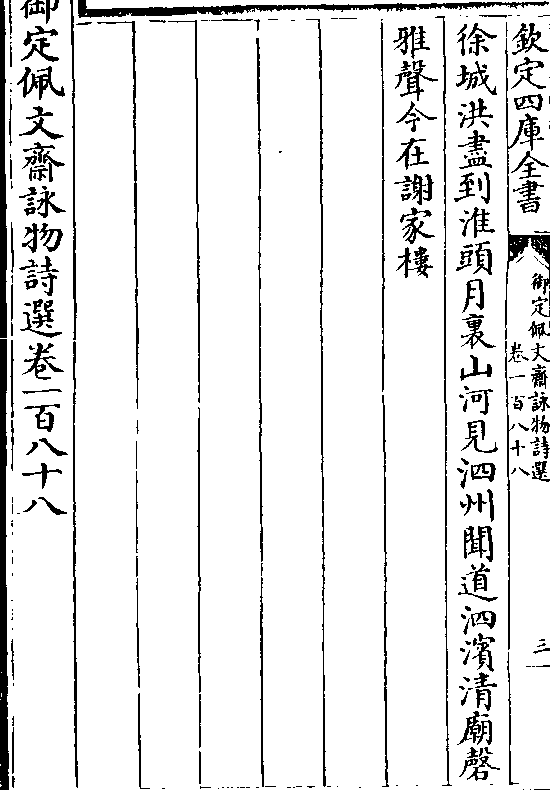 欽定四庫全書
御定佩文齋詠物詩選
卷一百八十八
三
徐城洪盡到淮頭月裏山河見泗州聞道泗濱清廟磬
雅聲今在謝家樓
御定佩文齋詠物詩選卷一百八十八